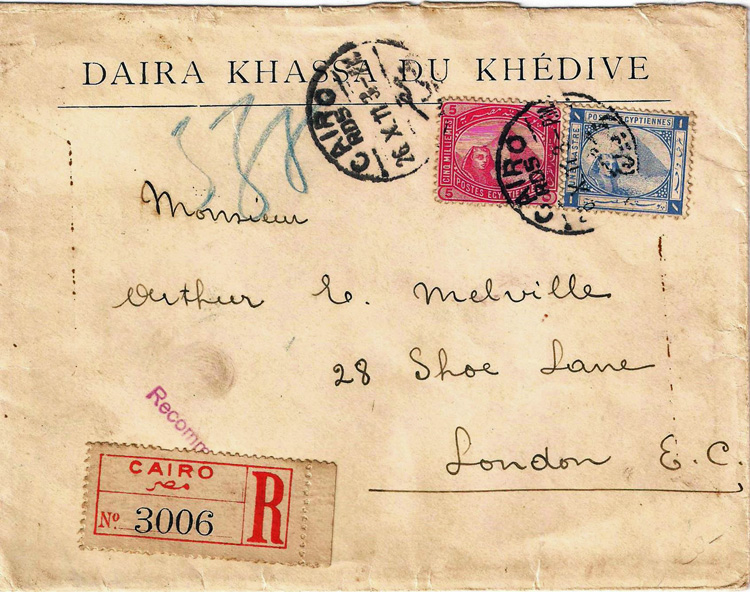 DAIRA KHASSA DU KHÉDIVE
338
CAIRO
RDS
26.X.11
5 5
CINQ MILLIEMES
POSTES EGYPTIENNES
5 5
1 POSTES EGYPTIENNES 1
PIASTRE
CAIRO
RDS
Monsieur
Arthur E. Melville
28 Shoe Lane
London E.C.
Recomm
CAIRO
مصر
R
No 3006